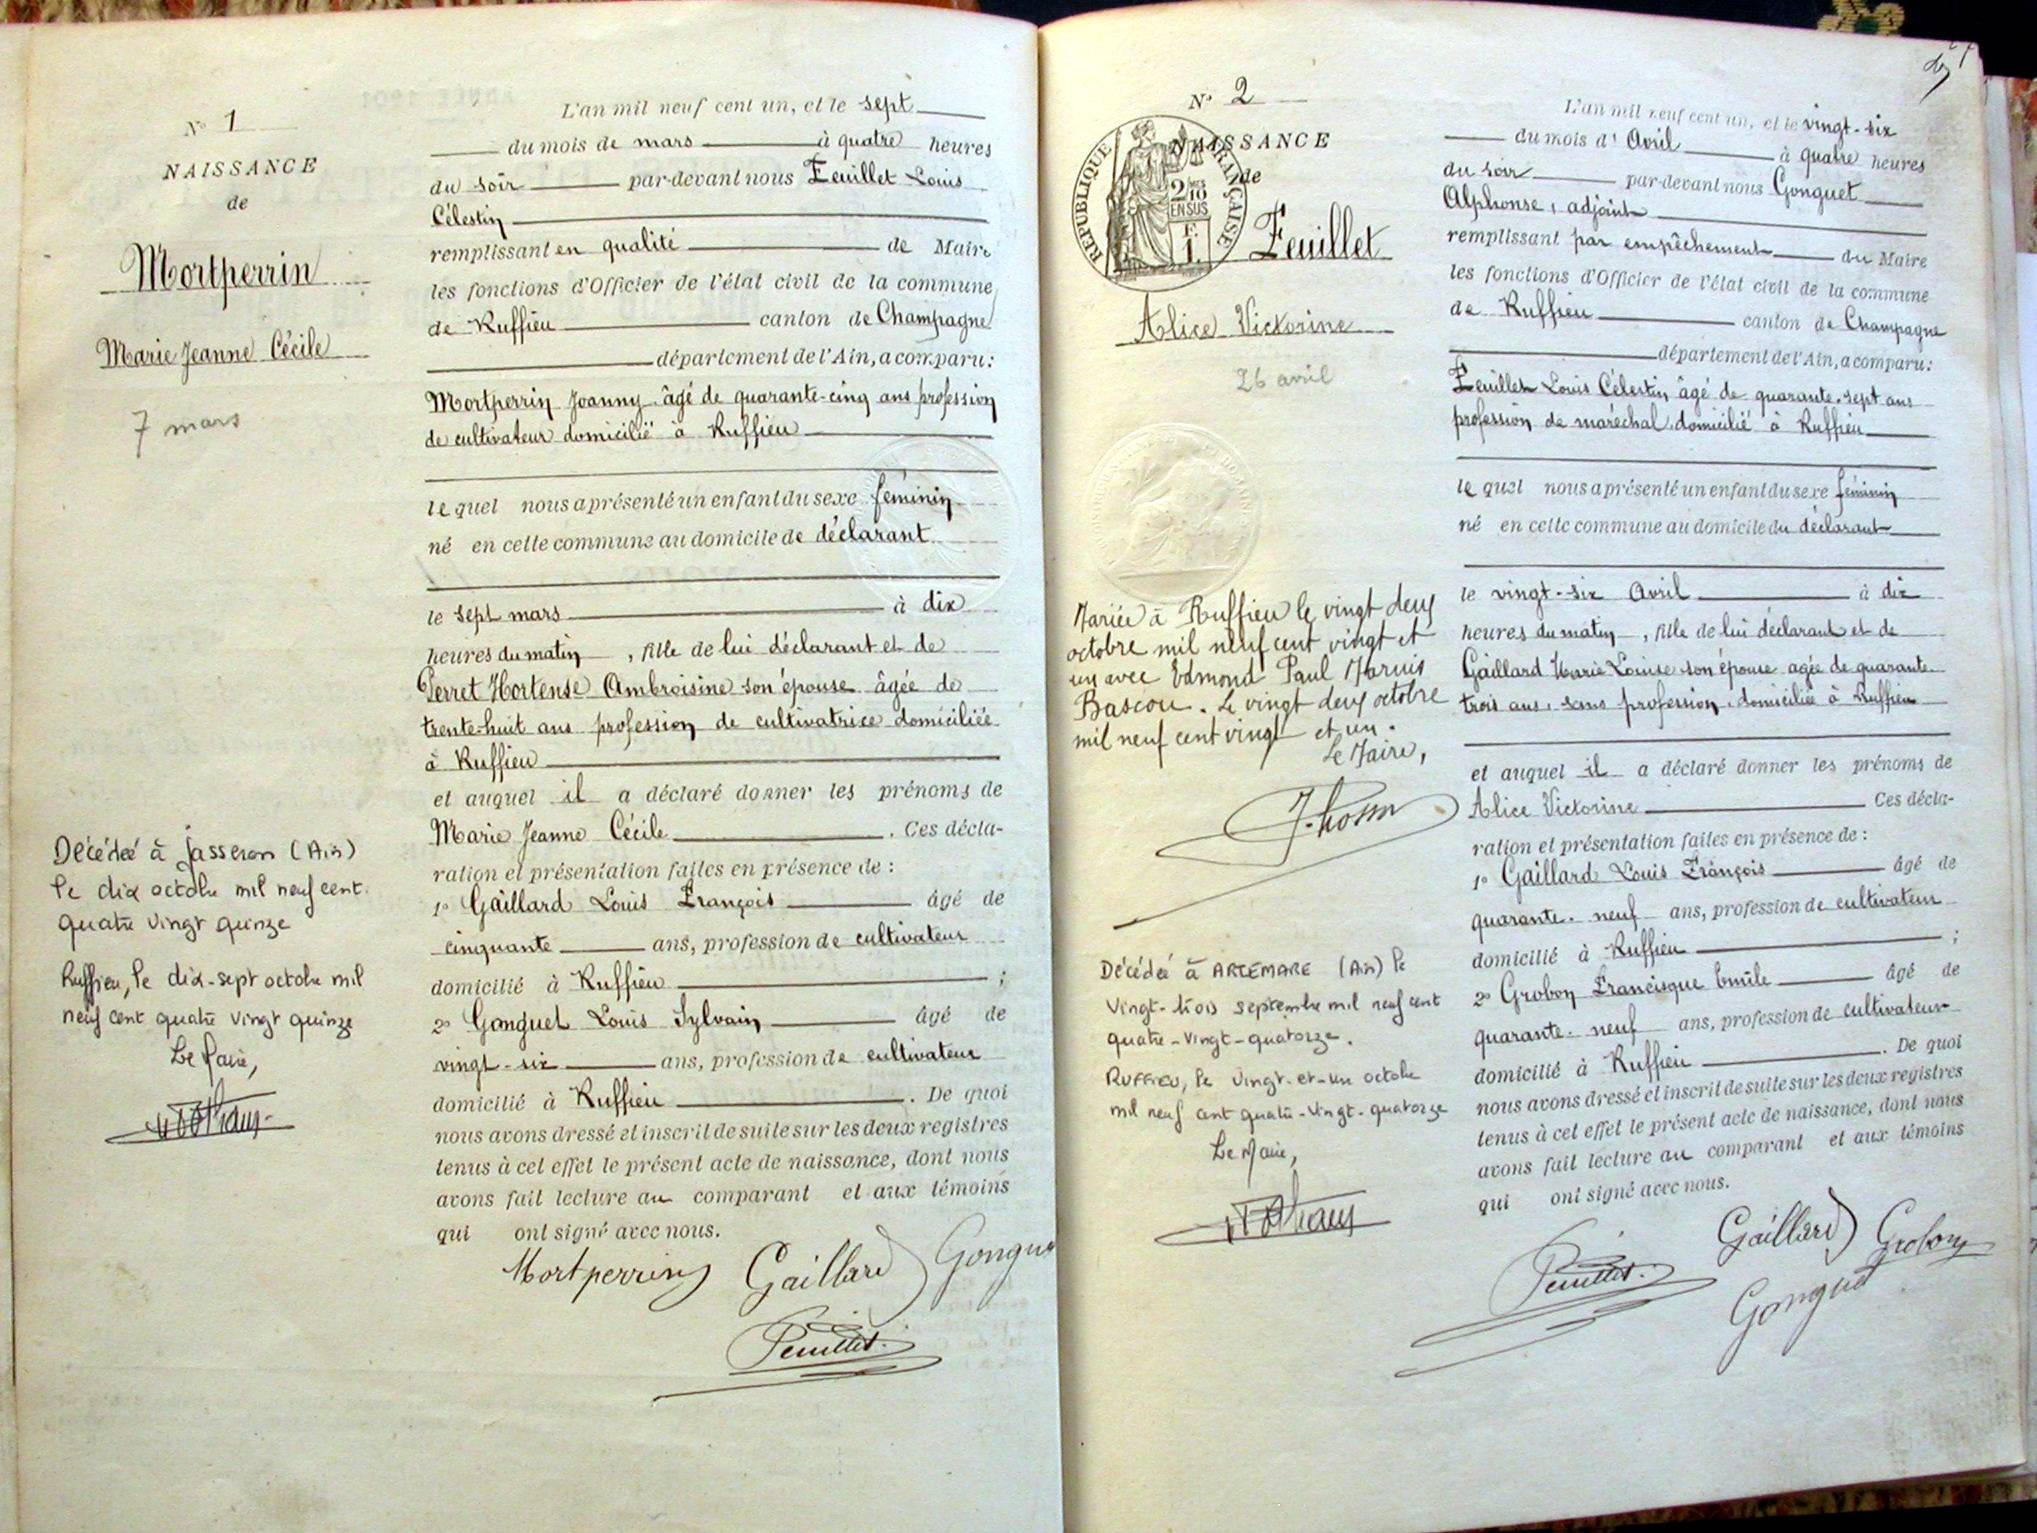 N° 1
NAISSANCE
de
Mortperrin
Marie Jeanne Cécile
7 mars
Décédée à Jasseron (Ain)
le dix octobre mil neuf cent
quatre vingt quinze
Ruffieu, le dix-sept octobre mil
neuf cent quatre vingt quinze
Le Maire,
L'an mil neuf cent un, et le sept
du mois de mars à quatre heures
du soir par-devant nous Feuillet Louis
Célestin
remplissant en qualité de Maire
les fonctions d'Officier de l'état civil de la commune
de Ruffieu canton de Champagne
département de l'Ain, a comparu :
Mortperrin Joanny âgé de quarante-cinq ans profession
de cultivateur domicilié à Ruffieu
lequel nous a présenté un enfant du sexe féminin
né en cette commune au domicile de déclarant
le sept mars à dix
heures du matin, fille de lui déclarant et de
Perret Hortense Ambroisine son épouse âgée de
trente-huit ans profession de cultivatrice domiciliée
à Ruffieu
et auquel il a déclaré donner les prénoms de
Marie Jeanne Cécile . Ces décla-
ration et présentation faites en présence de :
1° Gaillard Louis François âgé de
cinquante ans, profession de cultivateur
domicilié à Ruffieu ;
2° Gonguet Louis Sylvain âgé de
vingt-six ans, profession de cultivateur
domicilié à Ruffieu . De quoi
nous avons dressé et inscrit de suite sur les deux registres
tenus à cet effet le présent acte de naissance, dont nous
avons fait lecture au comparant et aux témoins
qui ont signé avec nous.
Mortperrin Gaillard Gonguet
Feuillet
N° 2
NAISSANCE
de
RÉPUBLIQUE FRANÇAISE
2/10 EN SUS
F. 1.
Feuillet
Alice Victorine
26 avril
Mariée à Ruffieu le vingt deux
octobre mil neuf cent vingt et
un avec Edmond Paul Marius
Bascou. Le vingt deux octobre
mil neuf cent vingt et un.
Le Maire,
Décédée à ARTEMARE (Ain) le
vingt-trois septembre mil neuf cent
quatre-vingt-quatorze.
RUFFIEU, le vingt-et-un octobre
mil neuf cent quatre-vingt-quatorze
Le Maire,
L'an mil neuf cent un, et le vingt-six
du mois d'Avril à quatre heures
du soir par-devant nous Gonguet
Alphonse, adjoint
remplissant par empêchement du Maire
les fonctions d'Officier de l'état civil de la commune
de Ruffieu canton de Champagne
département de l'Ain, a comparu :
Feuillet Louis Célestin âgé de quarante-sept ans
profession de maréchal, domicilié à Ruffieu
lequel nous a présenté un enfant du sexe féminin
né en cette commune au domicile du déclarant
le vingt-six Avril à dix
heures du matin, fille de lui déclarant et de
Gaillard Marie Louise son épouse agée de quarante-
trois ans, sans profession, domiciliée à Ruffieu
et auquel il a déclaré donner les prénoms de
Alice Victorine Ces décla-
ration et présentation faites en présence de :
1° Gaillard Louis François âgé de
quarante-neuf ans, profession de cultivateur
domicilié à Ruffieu ;
2° Grobon Francisque Emile âgé de
quarante-neuf ans, profession de cultivateur
domicilié à Ruffieu . De quoi
nous avons dressé et inscrit de suite sur les deux registres
tenus à cet effet le présent acte de naissance, dont nous
avons fait lecture au comparant et aux témoins
qui ont signé avec nous.
Gaillard Grobon
Feuillet Gonguet